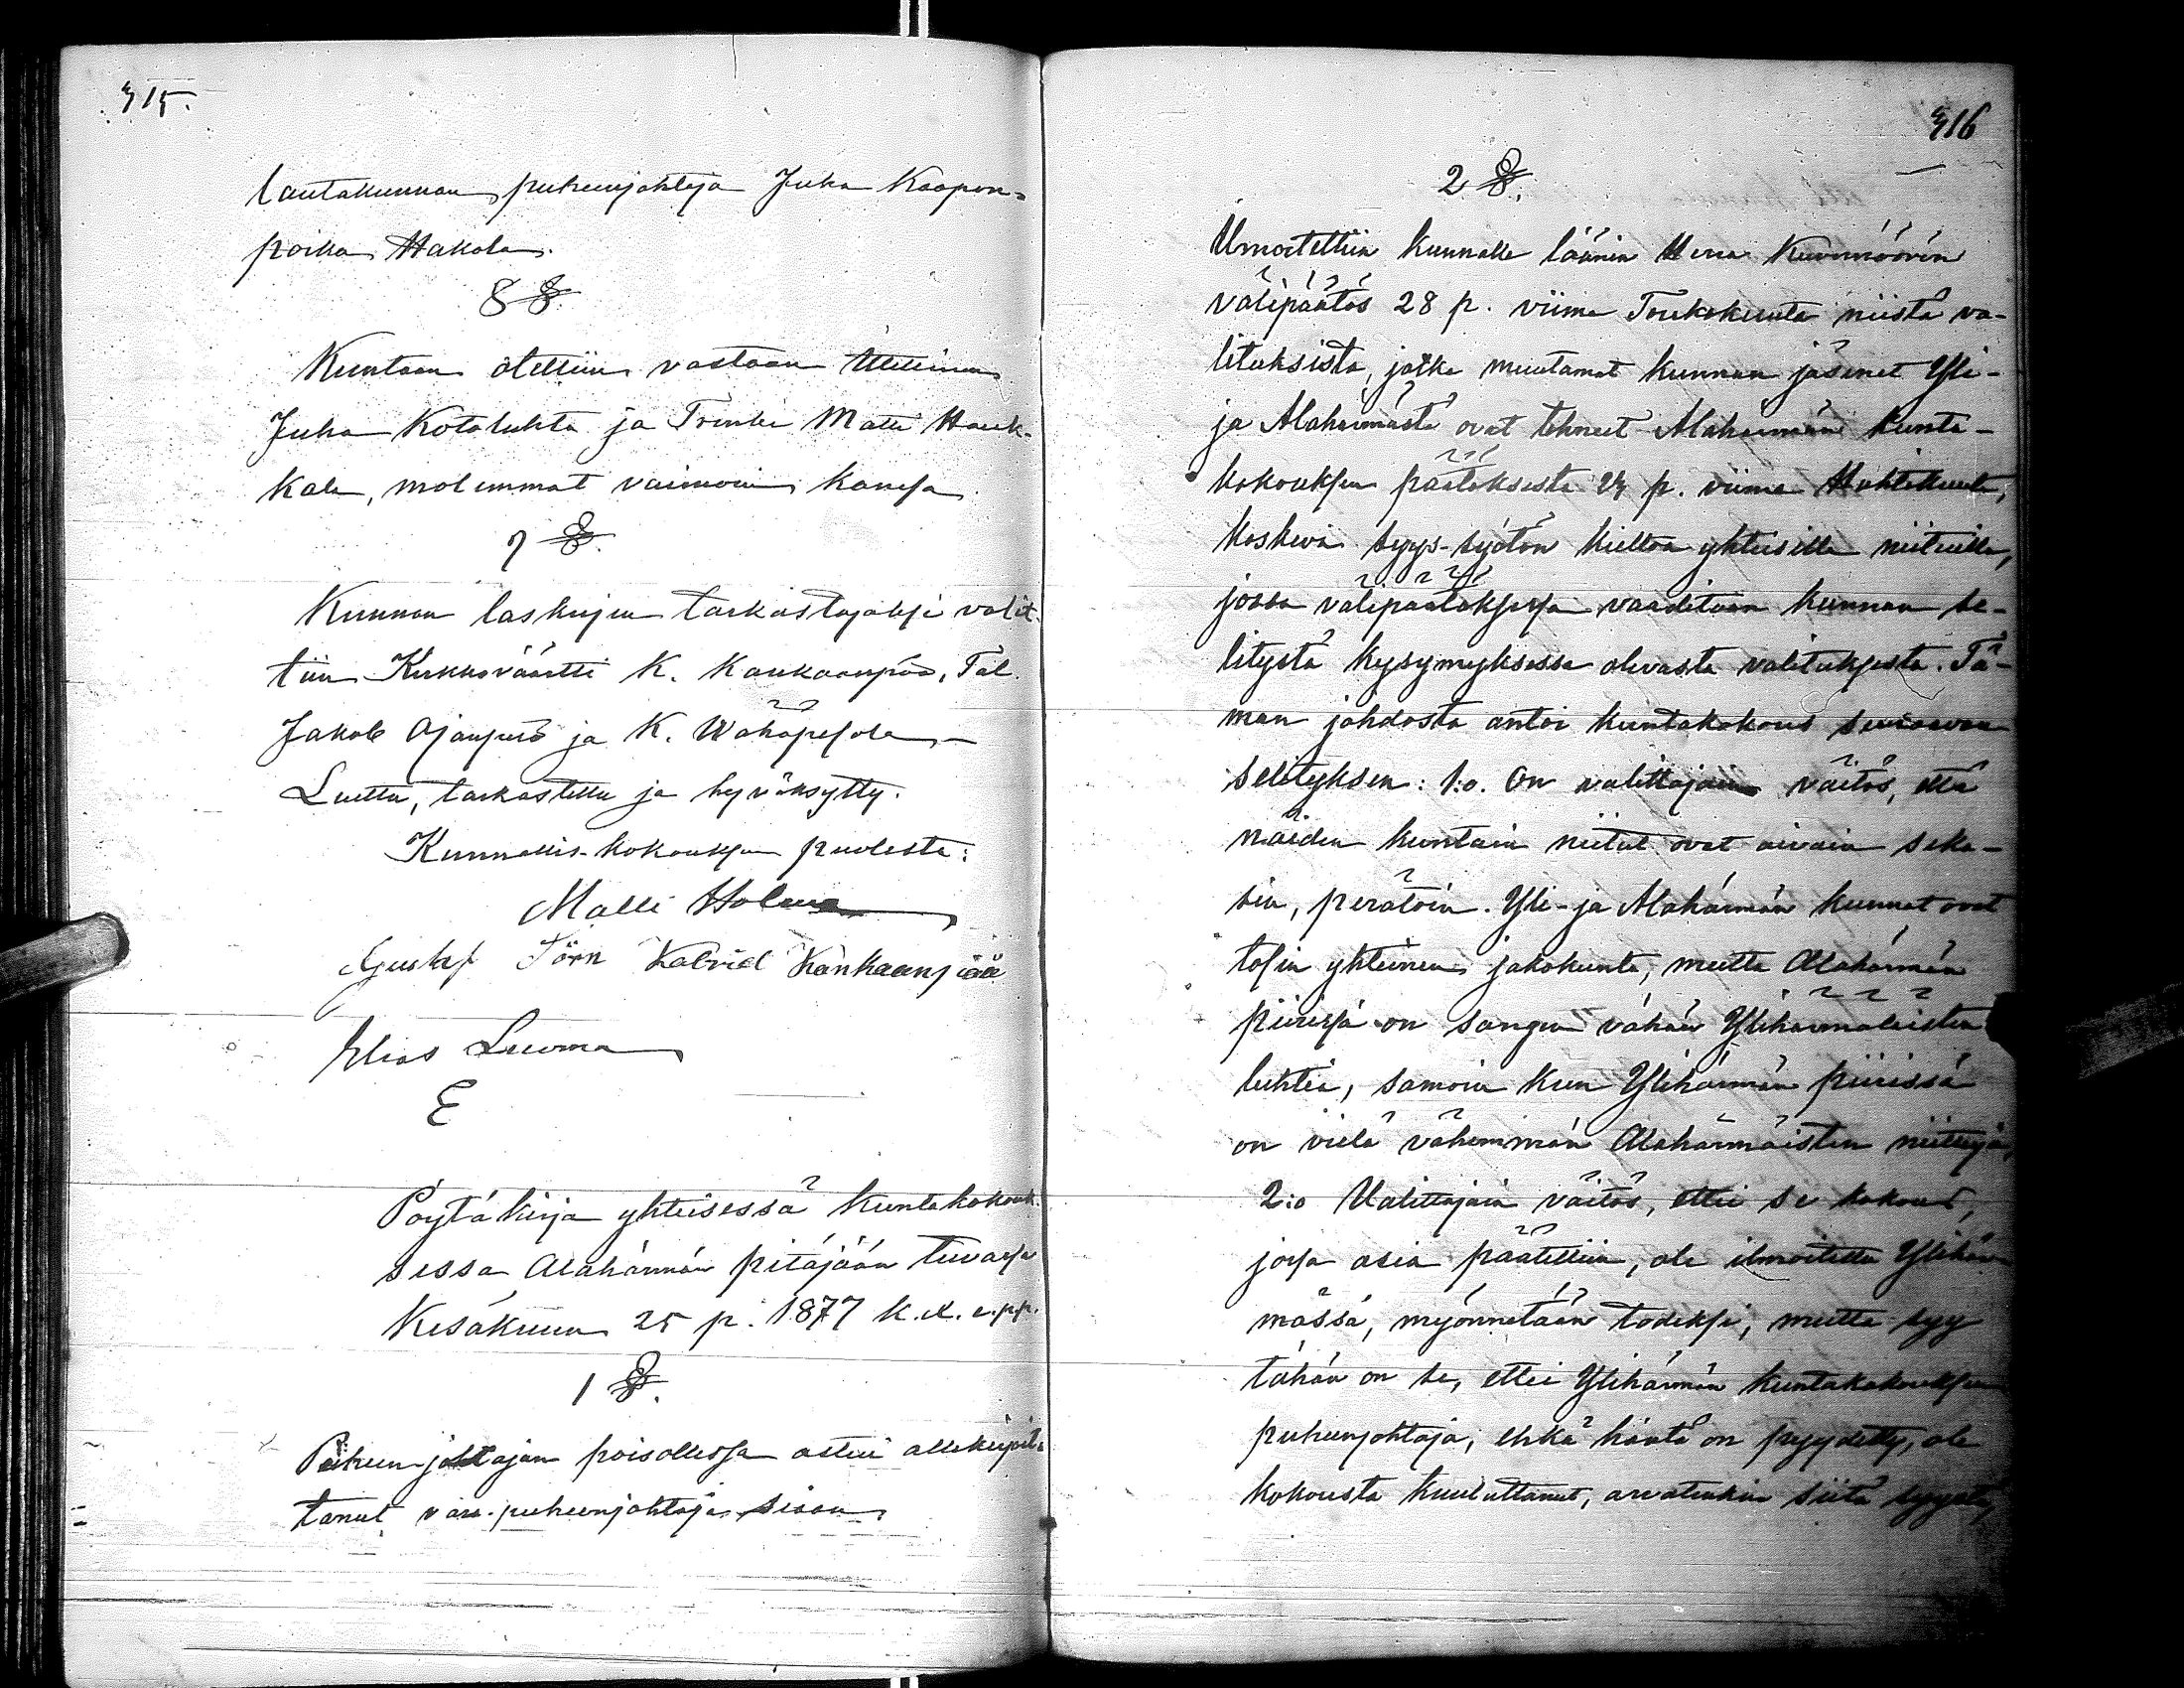 315.
lautakunnan puheenjohtaja Juha Kaapon=
poika Hakola.
8 §.
Kuntaan otettiin vastaan
Juha Kotaluhta ja Matti Hauk-
kala, molemmat vaimoin kanssa.
7 §.
Kunnan laskujen tarkastajaksi valit-
tiin Kirkkoväärtti K. Kankaanpää, Tal.
Jakob Ojanperä ja K. Wähäpesola.—
Luettu, tarkastettu ja hyväksytty.
Kunnallis-kokouksen puolesta:
Matti Holma
Gustaf Törn Kabriel Kankaanpää
Elias Luoma
E
Pöytäkirja yhteisessä Kuntakokouk-
sessa Alahärmän pitäjään tuvassa
Kesäkuun 25 p. 1877 k.
1 §.
Puheen-johtajan poisollessa astui allekirjoit-
tanut vara-puheenjohtaja siaan.
316
2 §.
Ilmoitettiin kunnalle läänin Herra Kuvernöörin
välipäätös 28 p. viime Toukokuuta niistä va-
lituksista, jotka muutamat kunnan jäsenet Yli-
ja Alahärmästä ovat tehneet Alahärmän kunta-
kokouksen päätöksestä 24 p. viime Huhtikuuta,
koskeva syys-syötön kieltoa yhteisillä niituilla,
jossa välipäätöksessä vaaditaan kunnan se-
litystä kysymyksessä olevasta valituksesta. Tä-
män johdosta antoi kuntakokous seuraavan
selityksen: 1:o. On valittajain väitös, että
näiden kuntain niitut ovat aivain seka-
sin, perätöin. Yli- ja Alahärmän kunnat ovat
tosin yhteinen jakokunta, mutta Alahärmän
piirissä on sangen vähän Ylihärmäläisten
luhtia, samoin kun Ylihärmän piirissä
on vielä vähemmän Alahärmäisten niittujä,
2:o Valittajain väitös, ettei se kokous,
jossa asia päätettiin, ole ilmoitettu Ylihär
mässä, myönnetään todeksi, mutta syy
tähän on se, ettei Ylihärmän kuntakokouksen
puheenjohtaja, ehkä häntä on pyydetty, ole
kokousta kuuluttanut, arvatenkin siitä syystä,